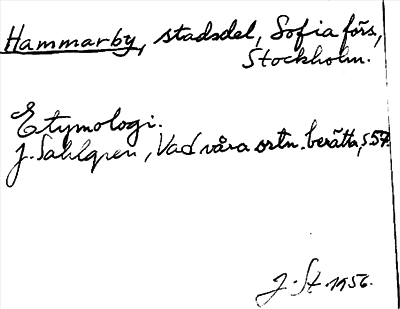 Hammarby, stadsdel, Sofia förs,
Stockholm.
Etymologi.
J. Sahlgren, Vad våra ortn. berätta, s 57
J. St. 1956.